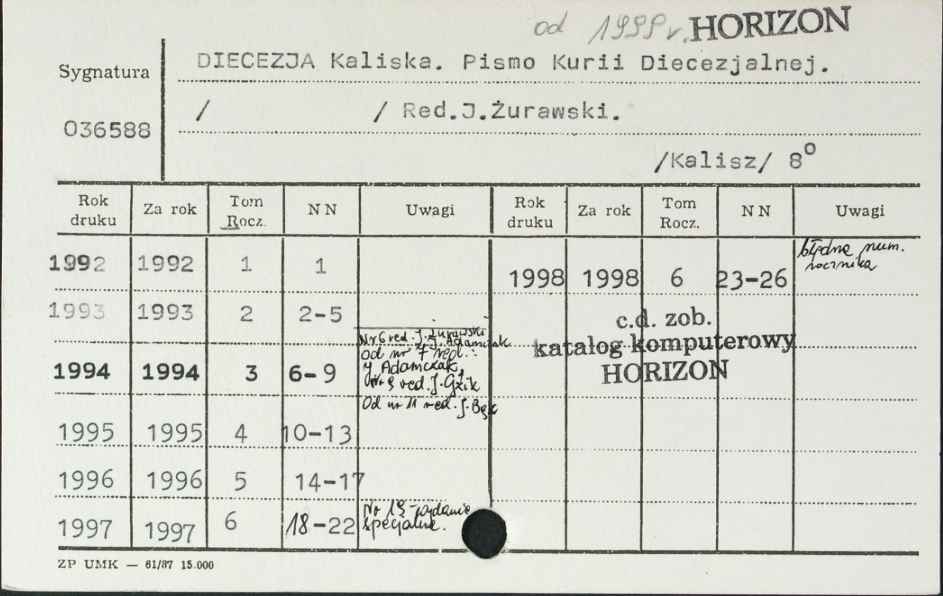 od 1999 r. HORIZON
Sygnatura
036588
DIECEZJA Kaliska. Pismo Kurii Diecezjalnej.
/ / Red.J.Żurawski.
/Kalisz/ 8°
Rok druku Za rok Tom Rocz. NN Uwagi Rok druku Za rok Tom Rocz. NN Uwagi
1992 1992 1 1
1993 1993 2 2-5
1994 1994 3 6-9
Nr 6 red. J. Żurawski
J. Adamczak
od nr 7 red.:
J Adamczak,
Nr 9 red. J. Gzik
Od nr 11 red. J. Bąk
1995 1995 4 10-13
1996 1996 5 14-17
1997 1997 6 18-22
Nr 19-wydanie
specjalne.
1998 1998 6 23-26
błędna num.
rocznika
c.d. zob.
katalog komputerowy
HORIZON
ZP UMK — 61/87 15.000